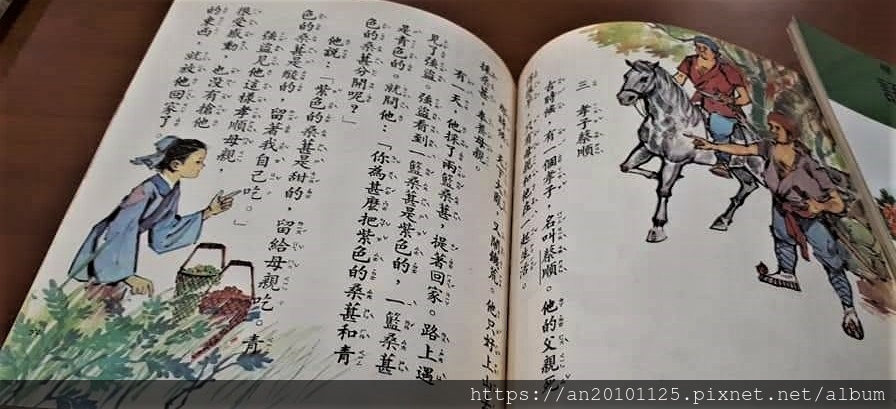 三 孝子蔡順
古時候,有一個孝子,名叫蔡順。他的父親死
只有母親和他在一起生活。
天下大亂,又鬧饑荒。他只好上山
採桑葚,奉養母親。
有一天,他採了兩籃桑葚,提著回家。路上遇
見了強盜。強盜看到一籃桑葚是紫色的,一籃桑葚
是青色的。就問他:「你為甚麼把紫色的桑葚和青
色的桑葚分開呢?」
他說:「紫色的桑葚是甜的,留給母親吃。青
色的桑葚是酸的,留著我自己吃。」
強盜見他這樣孝順母親,
很受感動,也沒有搶他
的東西,就放他回家了。
https://an20101125.pixnet.net/album